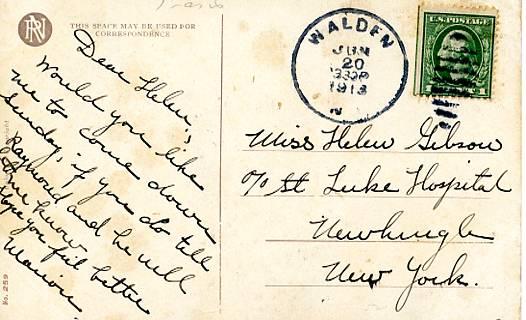 RN
THIS SPACE MAY BE USED FOR
CORRESPONDENCE
Dear Helen;,
Would you like
me to come down
Sunday, if you do tell
Raymond and he will
let me know.
Hope you feel better
Marion
No. 259
WALDEN
JUN
20
1913
N
U.S. POSTAGE
1
Miss Helen Gibson
c/o St Luke Hospital
Newburgh
New York.